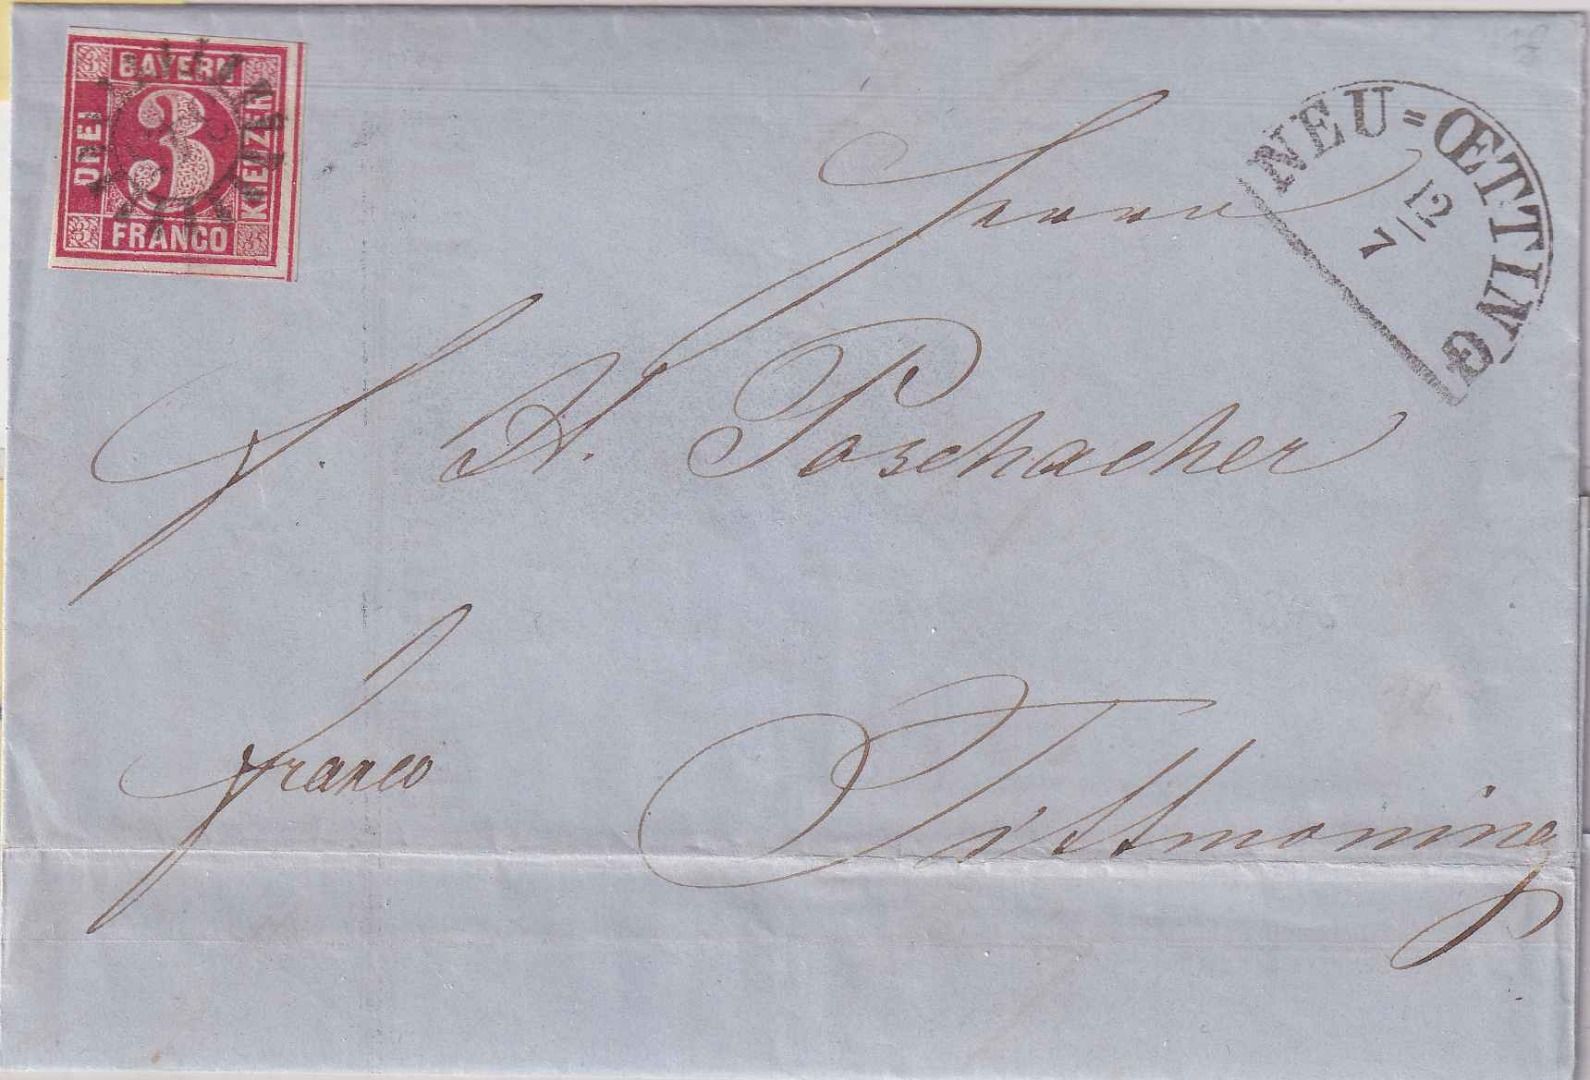 3 BAYERN 3
DREI 3 KREUZER
3 FRANCO 3
NEU=ŒTTING
12
7
Herrn
J. A. Poschacher
franco
Tittmoning